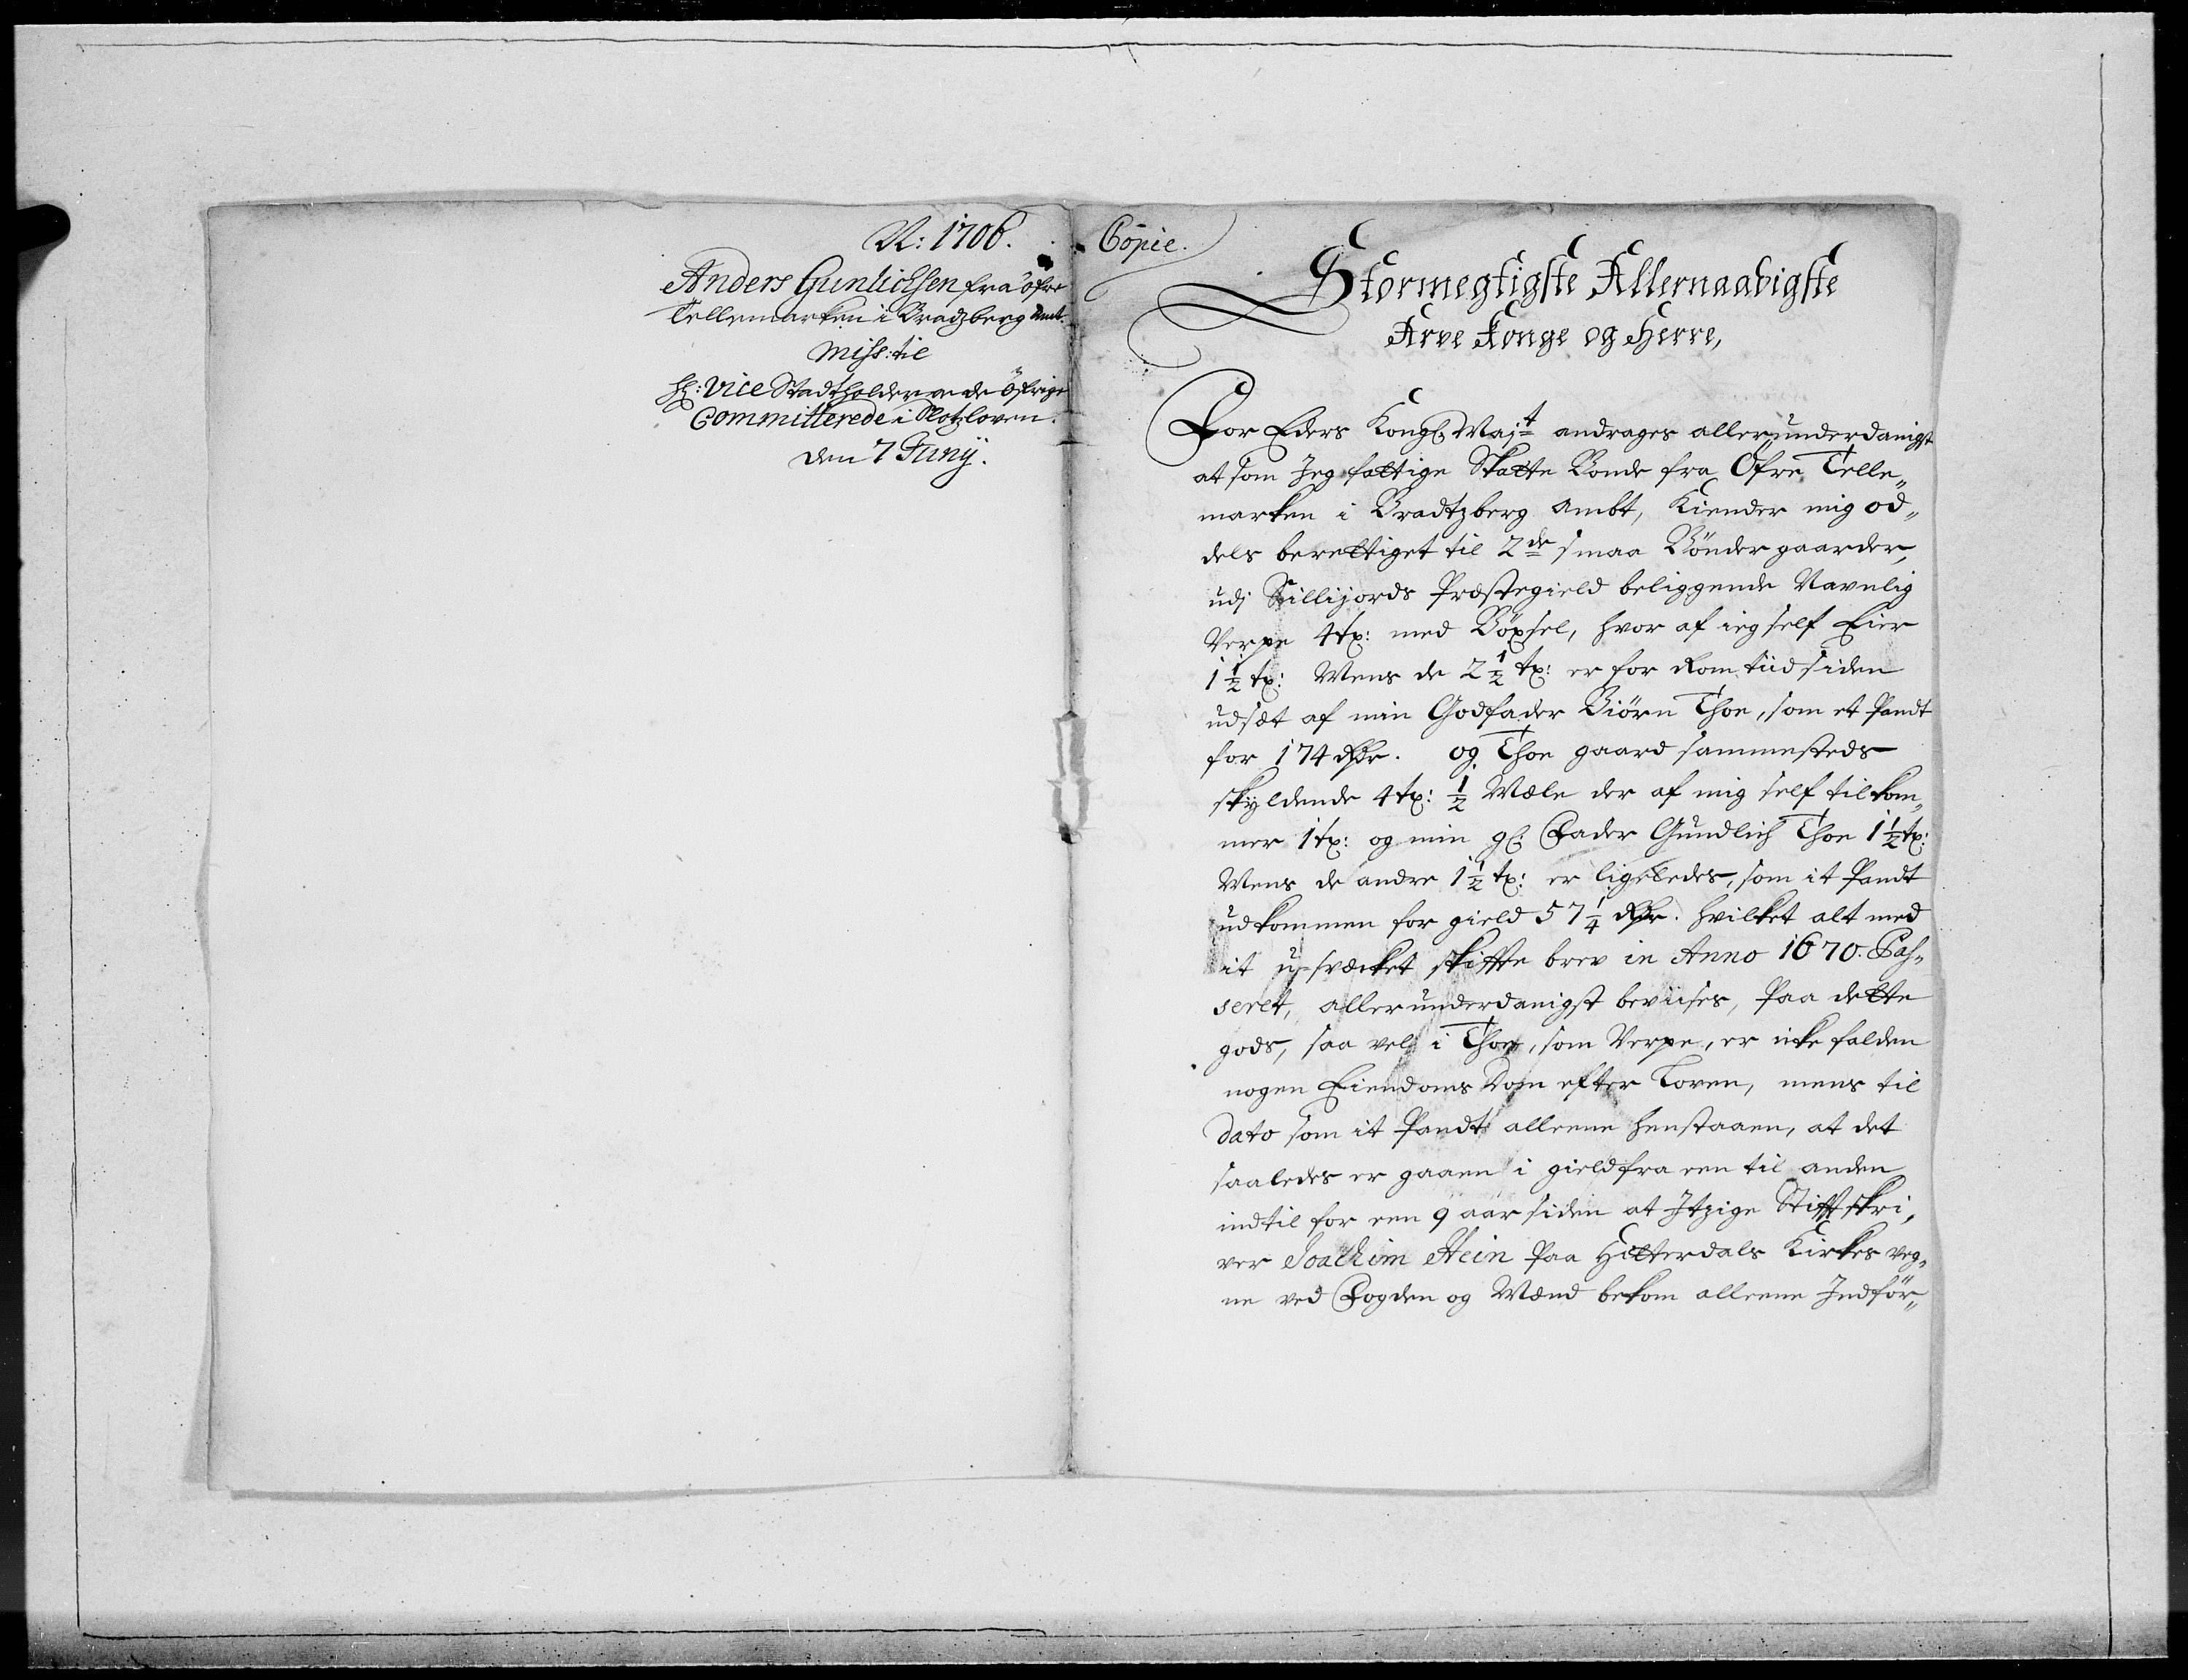 A: 1706.
Anders Gunlichsen fra öfre
Tellemarken i Bradzberg Amt.
Miss: til
H: Vice Stadtholder og de öfrige
Committerede i Slotzloven.
den 7 Junij.
Copie.
Stormegtigste Allernaadigste
Arve Konge og Herre,
For Eders Kongl. Maj.t andrages allerunderdanigst
at som Jeg fattige Skatte Bonde fra Öfre Telle„
marken i Bradtzberg Ambt, Kiender mig od„
dels berettiget til 2de smaa Bönder gaarder,
udj Sillijords Præstegield beliggende Navnlig
Verpe 4 tx: med Böxsel, hvor af ieg self Eier
1 1/2 tx: Mens de 2 1/2 tx: er for kom tiid siden
udsæt af min Godfader Biörn Thoe, som et Pandt
for 174 Rdr. og Thoe gaard sammesteds
skyldende 4 tx: 1/2 Mæle der af mig self tilkom„
mer 1 tx: og min gl: Fader Gundlich Thoe 1 1/2 tx:
Mens de andre 1 1/2 tx: er ligeledes, som it Pandt
udkommen for gield 57 1/4 Rdr. hvilket alt med
it u-svæcket skiffte brev in Anno 1670. Pas„
seret, allerunderdanigst beviises, Paa dette
gods, saa vel i Thoe, som Verpe, er icke falden
nogen Eiendoms Dom efter Loven, mens til
Dato som it Pandt alleene henstaaen, at det
saaledes er gaaen i gield fra een til anden
indtil for een 9 aar siden at Itzige Stifftskri„
ver Joachim Stein Paa Hitterdals Kirkes veg„
ne ved Fogden og Mænd bekom alleene Indför„